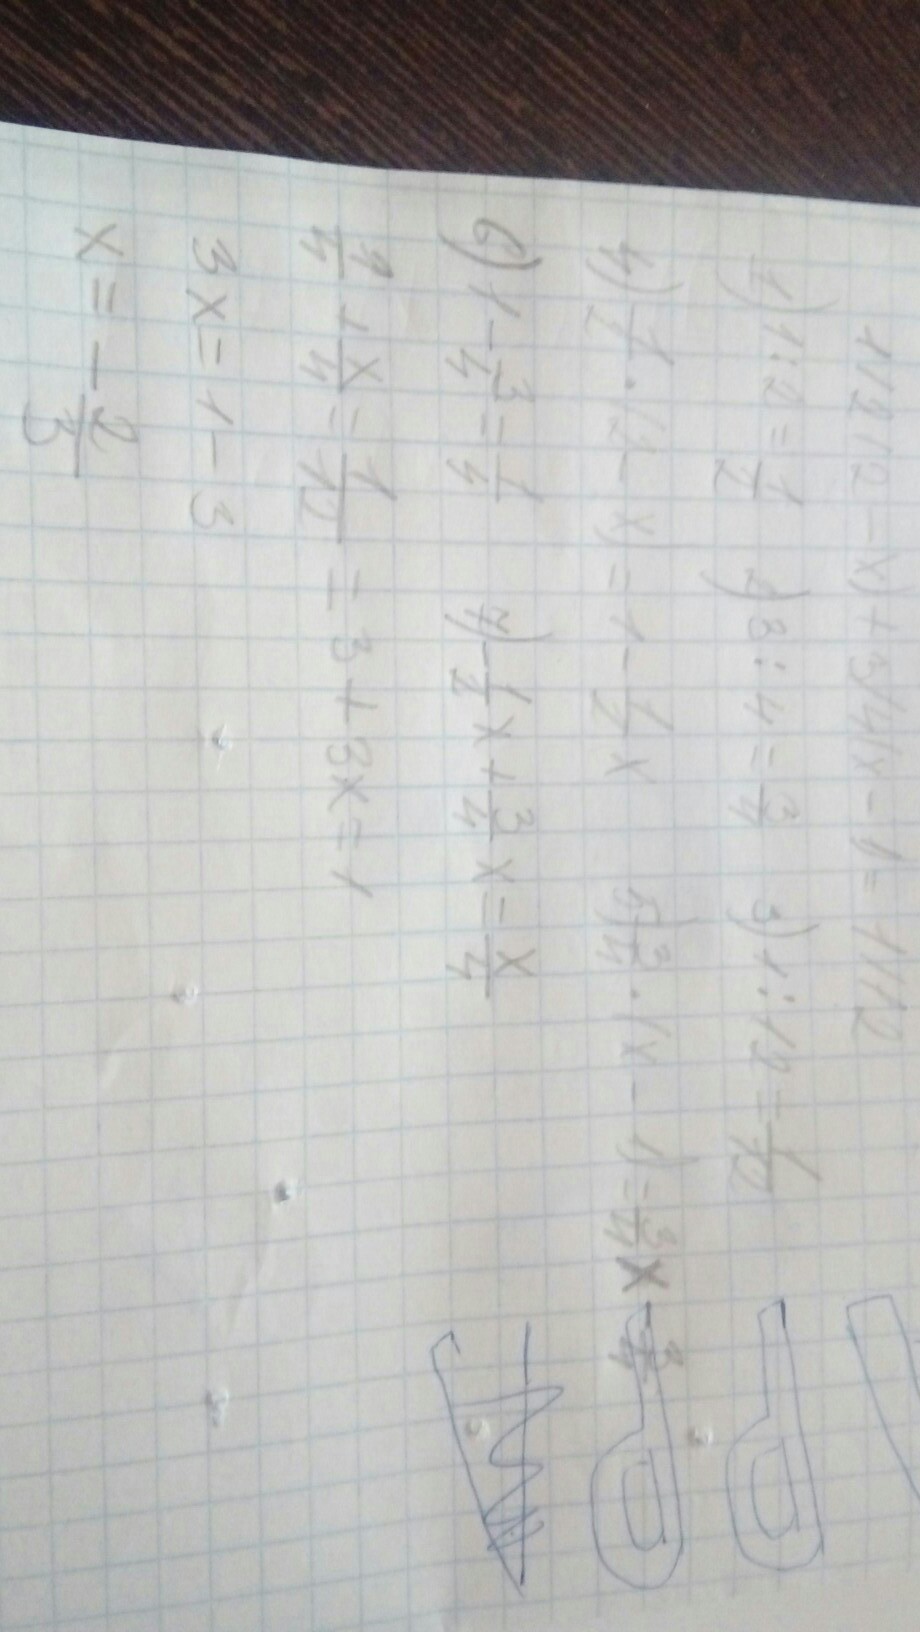 1/2(2-x)+3/4(x-1=1/12
1) 1:2=1/2 2) 3:4=3/4 3) 1:12=1/12
4) 1/2·(2-x)=1-1/2x 5) 3/4·(x-1)=3/4x-3/4
6) 1-3/4=1/4 7) -1/2x+3/4x=x/4
1/4+x/4=1/12=3+3x=1
3x=1-3
x=-2/3